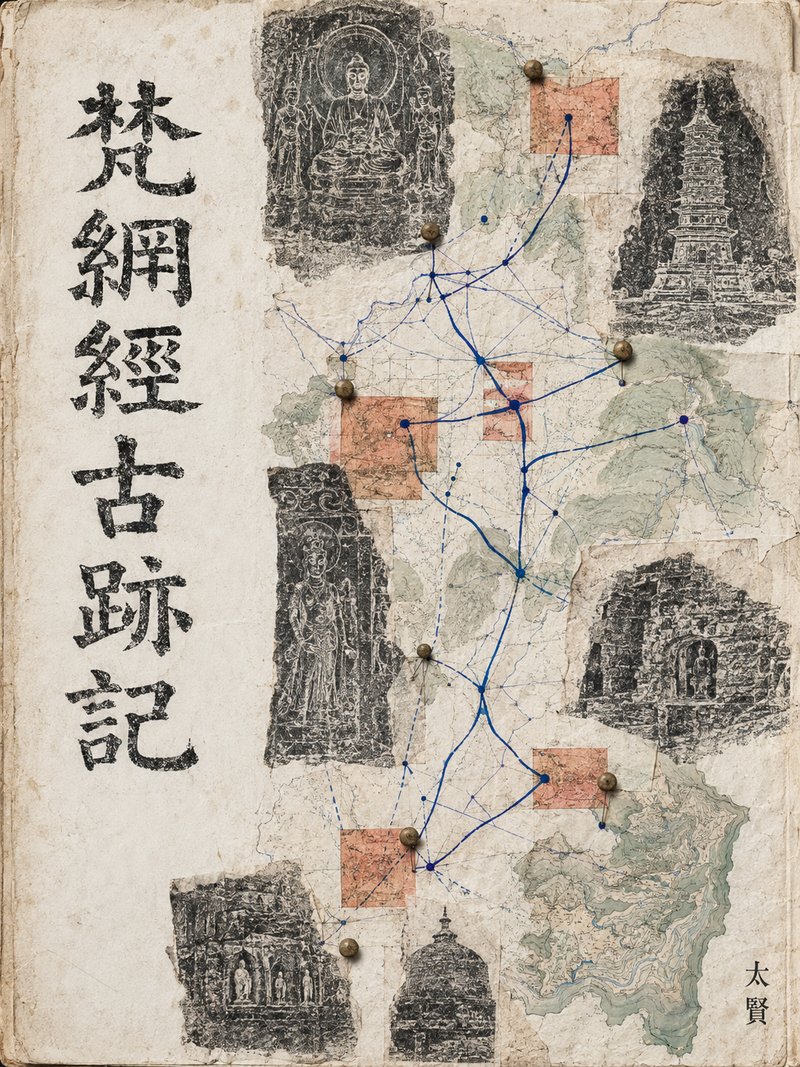 梵網經古跡記
太賢